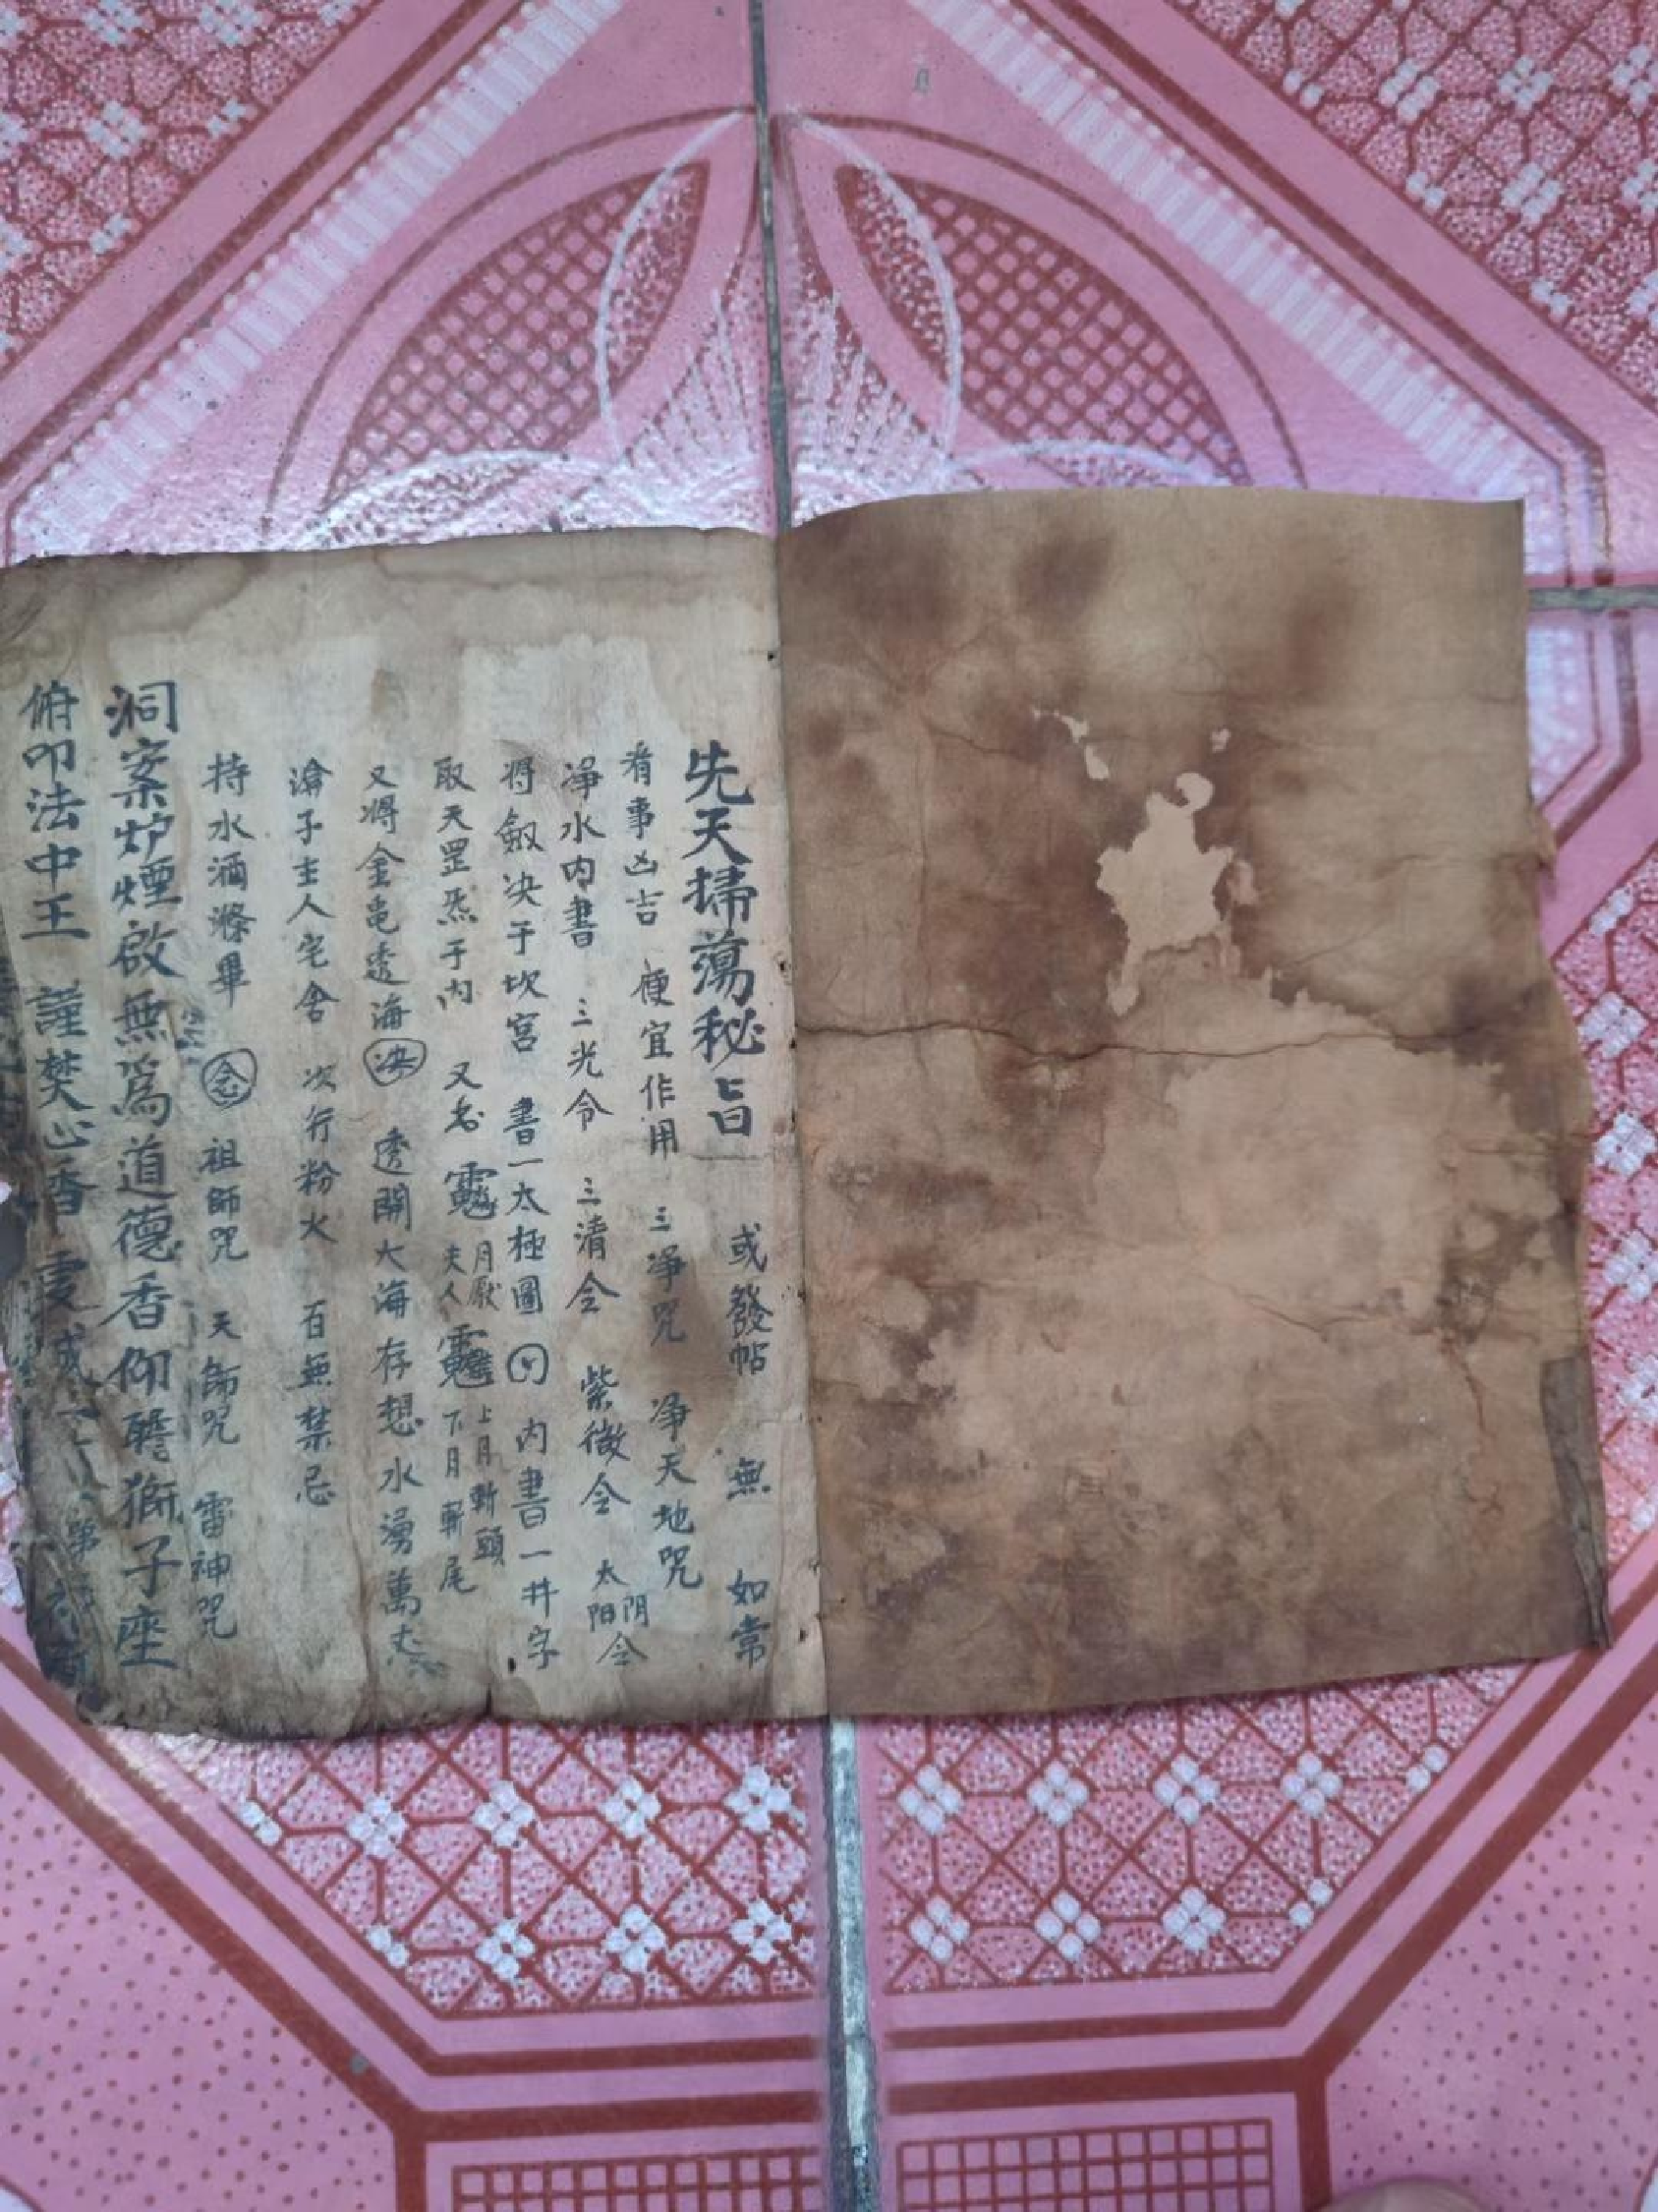 先天掃蕩秘旨 或發帖 無 如常
看事凶吉 便宜作用 三凈咒 凈天地咒
凈水內書 三光令 三清令 紫微令 太阳阴令
將劍決于坎宮 書一太極圖 內書一井字
取天罡炁于內 又名 月厭夫人 上月斬頭下月斬尾
又將金黾透海決 透開大海存想水湧萬丈
瀹子主人宅舍 次行粉火 百無禁忌
持水洒滌畢 念 祖師咒 天師咒 雷神咒
洞案炉煙啟無爲道德香仰瞻獅子座
俯叩法中王 謹焚心香 虔